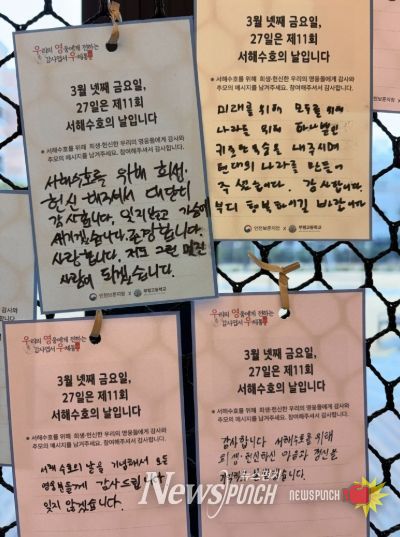 우리의 영웅에게 전하는
감사엽서 우체통
3월 넷째 금요일,
27일은 제11회
서해수호의 날입니다
※ 서해수호를 위해 희생·헌신한 우리의 영웅들에게 감사와
추모의 메시지를 남겨주세요. 참여해주셔서 감사합니다.
서해수호를 위해 희생,
헌신 해주셔서 대단히
감사합니다. 잊지않고 가슴에
새기겠습니다. 존경합니다.
사랑합니다. 저도 그런 멋진
사람이 되겠습니다.
인천보훈지청 X 부평고등학교
3월 넷째 금요일,
27일은 제11회
서해수호의 날입니다
※ 서해수호를 위해 희생·헌신한 우리의 영웅들에게 감사와
추모의 메시지를 남겨주세요. 참여해주셔서 감사합니다.
미래를 위해 모두를 위해
나라를 위해 하나뿐인
귀중한 목숨을 내주시며
현대의 나라를 만들어
주셨습니다. 감사합니다.
부디 행복하시길 바랍니다
인천보훈지청 X 부평고등학교
우리의 영웅에게 전하는
감사엽서 우체통
3월 넷째 금요일,
27일은 제11회
서해수호의 날입니다
※ 서해수호를 위해 희생·헌신한 우리의 영웅들에게 감사와
추모의 메시지를 남겨주세요. 참여해주셔서 감사합니다.
서해 수호의 날을 기념해서 모든
영웅분들께 감사드립니다
잊지 않겠습니다.
우리의 영웅에게 전하는
감사엽서 우체통
3월 넷째 금요일,
27일은 제11회
서해수호의 날입니다
※ 서해수호를 위해 희생·헌신한 우리의 영웅들에게 감사와
추모의 메시지를 남겨주세요. 참여해주셔서 감사합니다.
감사합니다 서해수호를 위해
희생·헌신하신 마음과 정신을
NEWSPUNCH
NEWSPUNCH